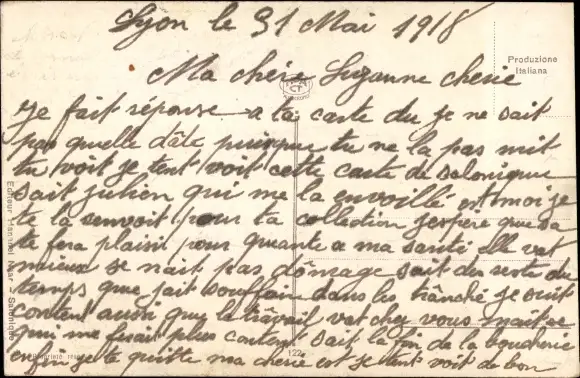 Lyon le 31 Mai 1918
Produzione
Italiana
Ma chère Suzanne cherie
Je fait réponse a ta carte du je ne sait
pas quelle dâte puisque tu ne la pas mit
tu voit je tent voit cette carte de Salonique
sait julien qui me la envoillé est moi je
te la renvoit pour ta collection jespère que sa
te fera plaisir pour quante a ma santé elle vat
mieux se nait pas dômage sait du reste du
temps que jait souffair dans les tranché je suit
content aussi que le travail vat chez vous mait se
qui me ferait plus content sait la fin de la boucherie
enfin je te quitte ma cherie est je tent voit de bon
Editeur Hananel Naar - Salonique
122